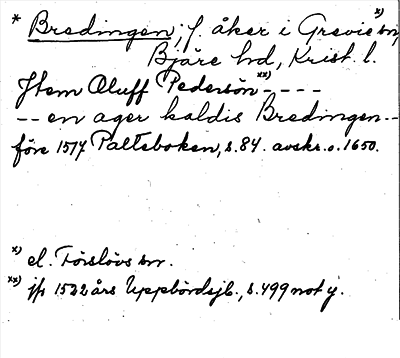 * Bredingen; f. åker i Grevie x) sn,
Bjäre hd, Krist. l.
Jtem Oluff Pedersön xx) - - - -
-- en ager kaldis Bredingen --
före 1517 Palteboken, s. 84. avskr. o. 1650.
x) el. Förslövs sn.
xx) jfr 1522 års Uppbördsjb., s. 499 not y.